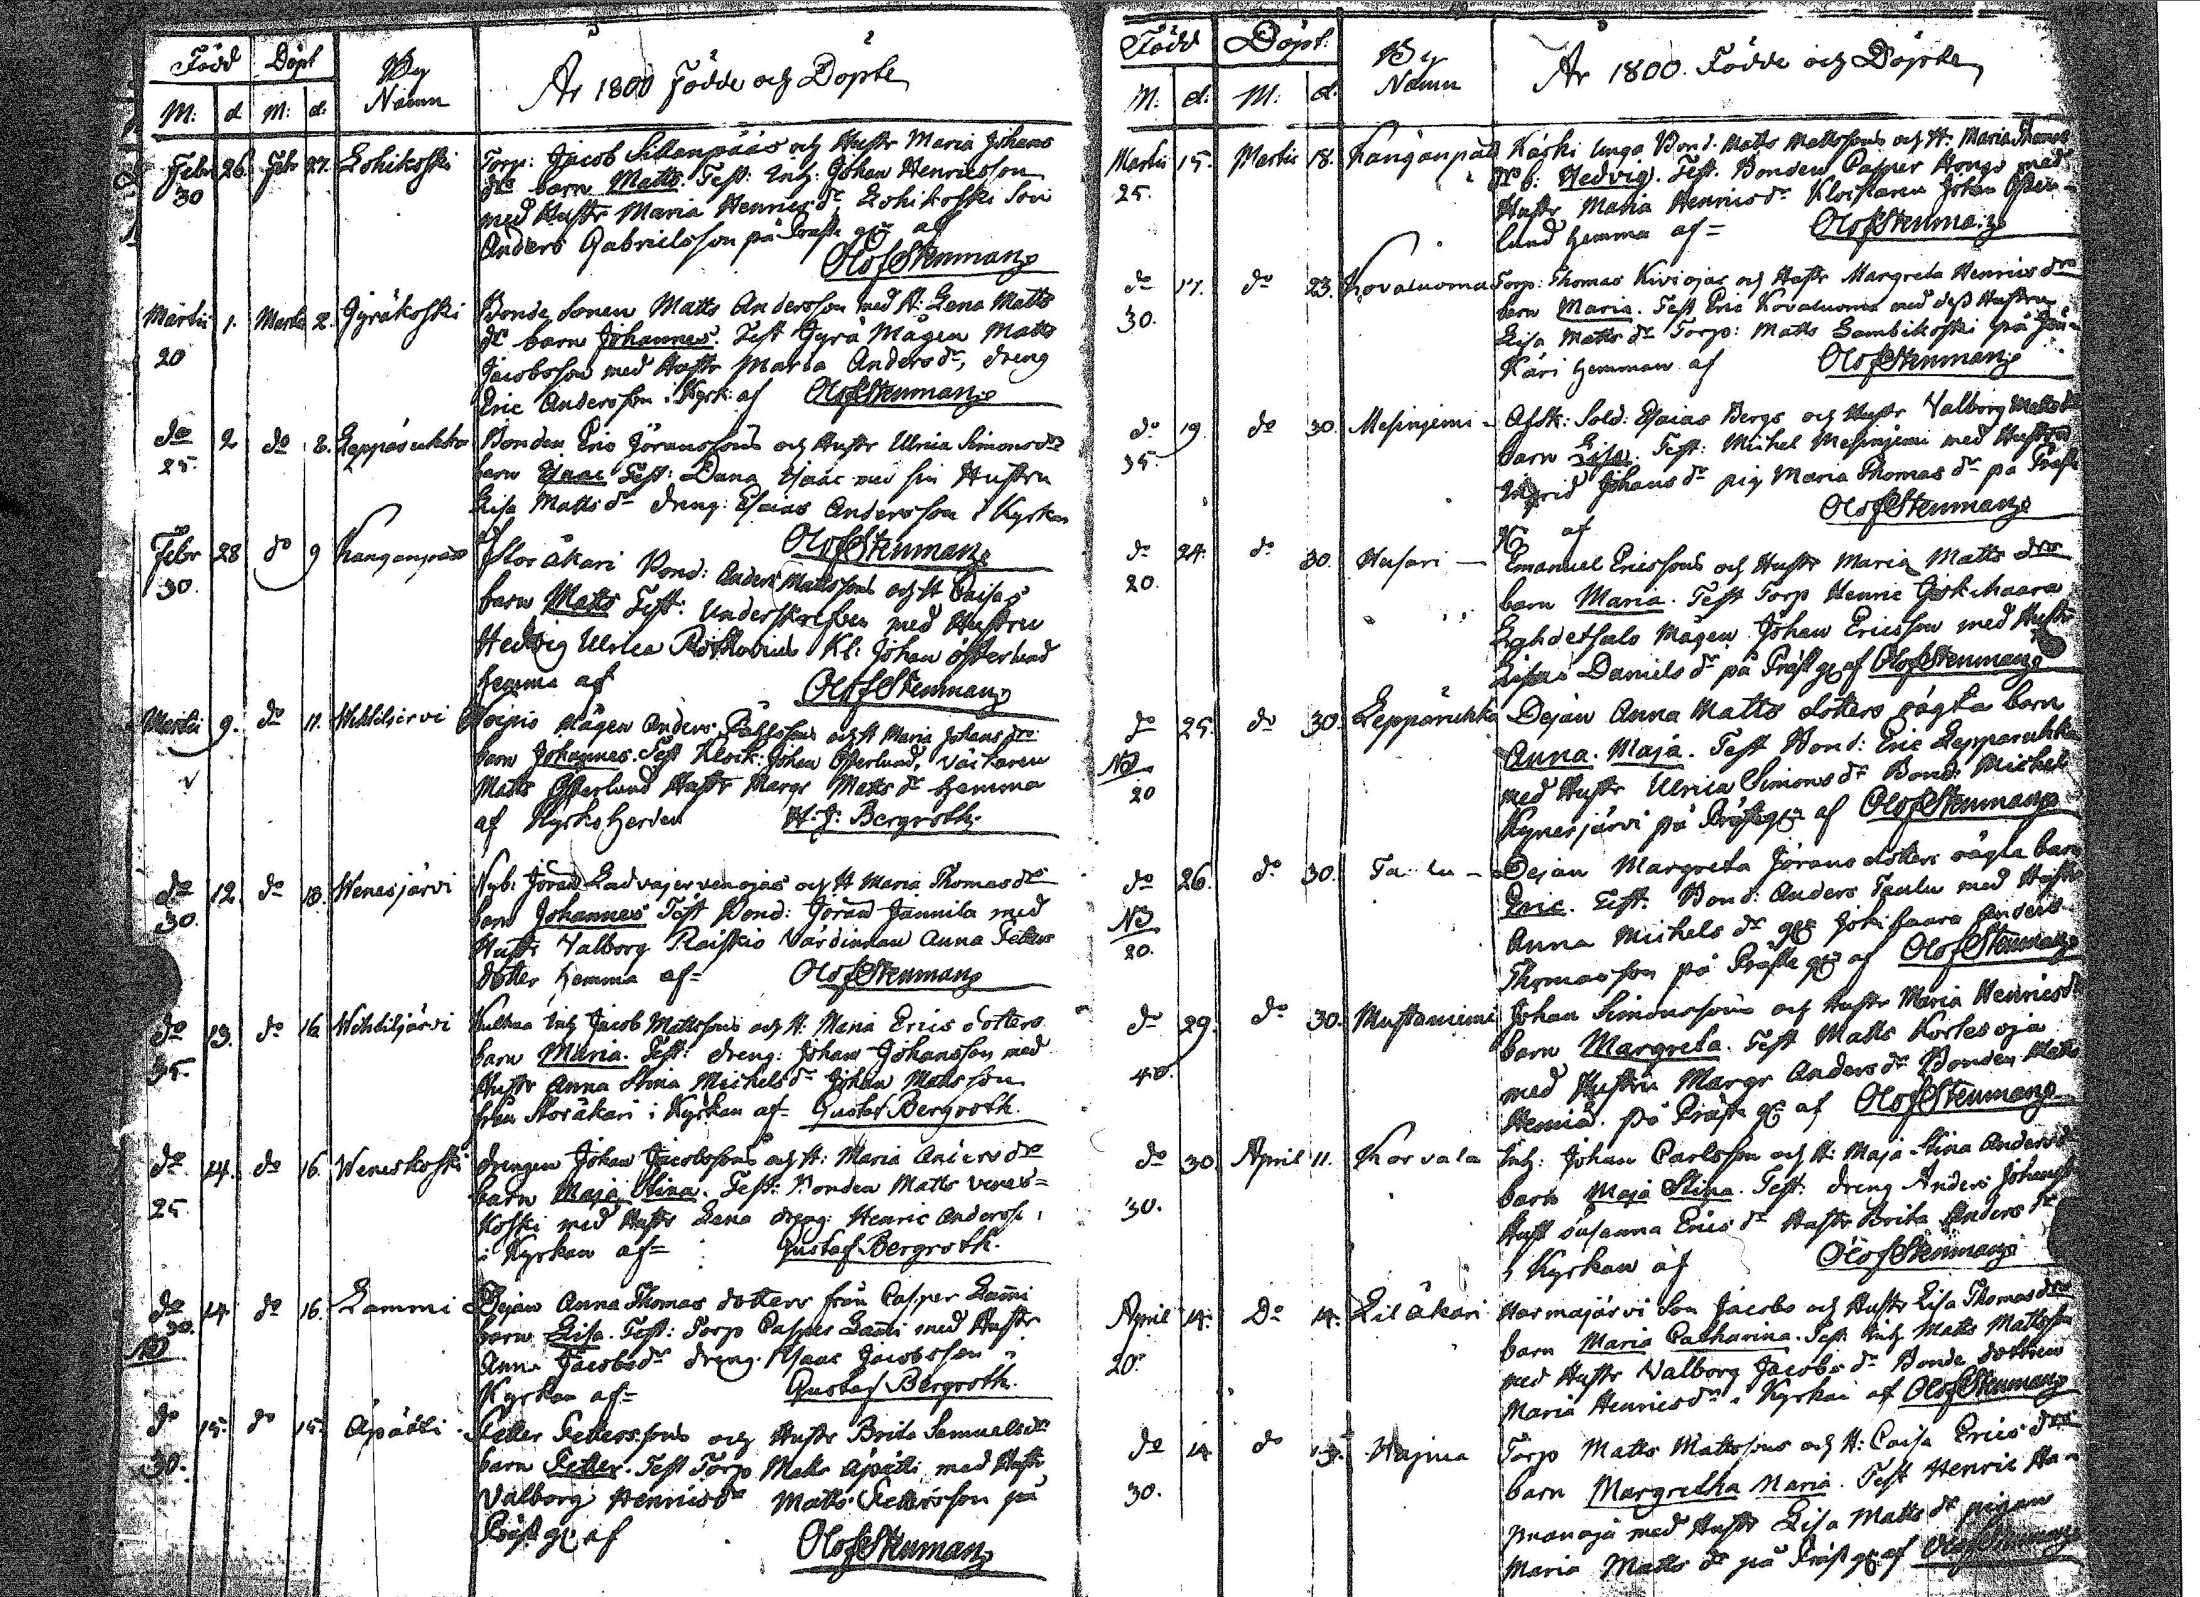 Född Döpt By Namn År 1800 Födde och Döpte
M: d M: d:
Febr 26. Febr 27. Lohikoski Torp: Jacob Sillanpääs och Hustr Maria Johans
30 dr barn Matts. Test: Inh: Johan Henricsson
med Hustr Maria Henricsdr Lohikoski Son
Anders Gabrielsson på Präste g: af
Olof Stenman
Martii 1. Martii 2. Jyräkoski Bonde Sonen Matts Andersson med H: Lena Matts
20 dr barn Johannes. Test Jyrä Mågen Matts
Jacobsson med Hustr Maria Andersdr, dreng
Eric Andersson i Kyrk: af Olof Stenman
do 2 do 2. Leppäruhka Bonden Eric Jöranssons och Hustr Ulrica Simonsdrs
25. barn Isaac Test: Isaac med sin Hustru
Lisa Mattsdr dreng: Esaias Andersson i Kyrkan
af Olof Stenman
Febr 28 do 9 Kanganpää Storåkari Bond: Anders Mattssons och H Caisas
30. barn Matts Test: Underskrefven med Hustru
Hedvig Ulrica Kl: Johan Österlund
hemma af Olof Stenman
Martii 9. do 11. Wihteljervi Mågen Anders och H Maria Johansdrs
barn Johannes. Test Klock: Johan Österlund,
Matts Österlund Hustr Margr Mattsdr hemma
af Kyrkoherden H: J: Bergroth
do 12. do 13. Wenesjärvi Nyb: Jöran och H Maria Thomasdrs
30. barn Johannes Test Bond: Jöran Jannila med
Hustr Valborg Raiskio Värdinnan Anna Petters
dotter hemma af= Olof Stenman
do 13. do 16 Wihteljärvi Inh Jacob Mattssons och H: Maria Erics dotters
35. barn Maria. Test: dreng: Johan Johansson med
Hustr Anna Stina Michelsdr Johan Matsson
från Storåkari i Kyrkan af= Gustaf Bergroth.
do 14. do 16. Weneskoski drengen Johan Jacobssons och H: Maria Andersdrs
25 barn Maja Stina. Test: Bonden Matts Venes=
koski med Hustr Lena dreng: Henric Anderss.
i Kyrkan af= Gustaf Bergroth.
do 14. do 16. Lammi Dejan Anna Thomas dotters från Casper Lam̅i
30. barn Lisa. Test: Torp Casper Lam̅i med Hustr
NB Anna Jacobsdr dreng. Isaac Jacobsson i
Kyrkan af= Gustaf Bergroth.
do 15. do 15. Äpätti Petter Petterssons och Hustr Brita Samuelsdrs
30. barn Petter. Test Torp Matts Äpätti med Hustr
Valborg Henricsdr Matts Pettersson på
Präst g: af
Olof Stenman
Född Döpt: By Namn År 1800. Födde och Döpte
M: d: M: d.
Martii 15. Martii 18. Kanganpää Käski unga Bond. Matts Mattssons och H: Maria Thomas
25. dr b: Hedvig. Test. Bonden Casper Hongo med
Hustr Maria Henricsdr Klockaren Johan Öster=
lund hemma af= Olof Stenman
do 17. do 23. Kovaluoma Torp: Thomas Kiviojas och Hustr Margreta Henricsdrs
30. barn Maria. Test Eric Kovaluoma med dess Hustru
Lisa Mattsdr Torp: Matts Lambikoski på
Käri hemman af Olof Stenman
do 19. do 30. Mesiniemi= Afsk: Sold: Esaias Bergs och Hustr Valborg Mattsdrs
35. barn Lisa. Test: Michel Mesiniemi med Hustru
Ingrid Johansdr pig Maria Thomasdr på Präst
g: af Olof Stenman
do 24. do 30. Husari Emanuel Ericssons och Hustr Maria Mattsdrs
20. barn Maria. Test Torp Henric Jokihaara
Lehdetsalo Mågen Johan Ericsson med Hustr
Lisa Danielsdr på Präst g: af Olof Stenman
do 25. do 30. Leppäruhka Dejan Anna Matts dotters oägta barn
NB Anna. Maja. Test Bond: Eric Leppäruhka
20 med Hustr Ulrica Simonsdr Bond: Michel
Kynesjärvi på Präste g: af Olof Stenman
do 26. do 30. Taulu Dejan Margreta Jörans dotters oägta barn
NB Eric. Test. Bond: Anders Taulu med Hustr
20. Anna Michelsdr g: Jokihaara Anders
Thomasson på Präste g: af Olof Stenman
do 29. do 30. Mustaniemi Johan Simonssons och Hustr Maria Henricsd
40. barn Margreta. Test Matts Kortesoja
med Hustru Margr Andersdr Bonden Matts
på Präst g: af Olof Stenman
do 30. April 11. Korvala Inh: Johan Carlsson och H: Maja Stina Andersd
30. barn Maja Stina. Test: dreng Anders Johans
Hust Susanna Ericsdr Hustr Brita Andersdr
i Kyrkan af Olof Stenman
April 14. Do 14. Lilåkari Harmajärvi Son Jacobs och Hustr Lisa Thomasdrs
20. barn Maria Catharina. Test: Inh Matts Mattsson
med Hustr Valborg Jacobsdr Bonde dottren
Maria Henricsdr i Kyrkan af Olof Stenman
do 14 do Hajma Torp Matts Mattssons och H: Caisa Ericsdrs
30. barn Margretha Maria. Test Henric
med Hustr Lisa Mattsdr pigan
Maria Mattsdr på Präst g: af Olof Stenman